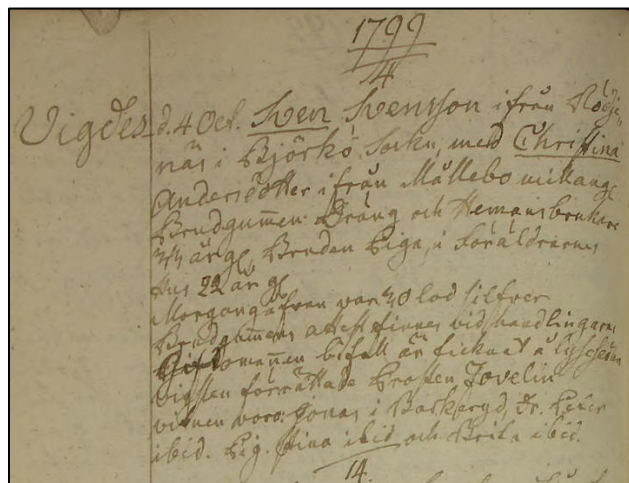 1799
4
Vigdes d. 4 Oct. Sven Svensson ifrån Rödje
näs i Björkö Sockn, med Christina
Andersdotter ifrån Mållebo mellange
Brudgummen Dräng och Hemansbrukare
åhr gl, Bruden Piga, i Föräldrarnes
Hus 22 år gl
Morgongåfvan var 30 lod silfver
Brudgummens attest finnes vid handlingarne
bifall är tecknat å
vigslen förrättade Prosten Jovelin
vitnen voro: Jonas i Barkeryd, Dr. Peter
ibid. Pig. Stina ibid och Brita ibid.
14.